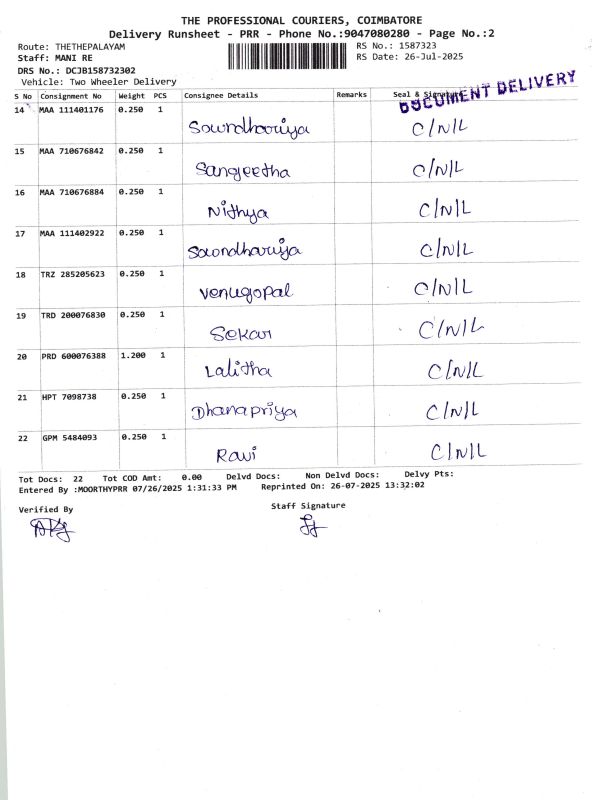 THE PROFESSIONAL COURIERS, COIMBATORE
Delivery Runsheet - PRR - Phone No.:9047080280 - Page No.:2
Route: THETHEPALAYAM RS No.: 1587323
Staff: MANI RE RS Date: 26-Jul-2025
DRS No.: DCJB158732302
Vehicle: Two Wheeler Delivery
DOCUMENT DELIVERY
S No Consignment No Weight PCS Consignee Details Remarks Seal & Signature
14 MAA 111401176 0.250 1 Sowndhariya C/N/L
15 MAA 710676842 0.250 1 Sangeetha C/N/L
16 MAA 710676884 0.250 1 Nithya C/N/L
17 MAA 111402922 0.250 1 Sowndhariya C/N/L
18 TRZ 285205623 0.250 1 Venugopal C/N/L
19 TRD 200076830 0.250 1 Sekar C/N/L
20 PRD 600076388 1.200 1 Lalitha C/N/L
21 HPT 7098738 0.250 1 Dhanapriya C/N/L
22 GPM 5484093 0.250 1 Ravi C/N/L
Tot Docs: 22 Tot COD Amt: 0.00 Delvd Docs: Non Delvd Docs: Delvy Pts:
Entered By :MOORTHYPRR 07/26/2025 1:31:33 PM Reprinted On: 26-07-2025 13:32:02
Verified By Staff Signature